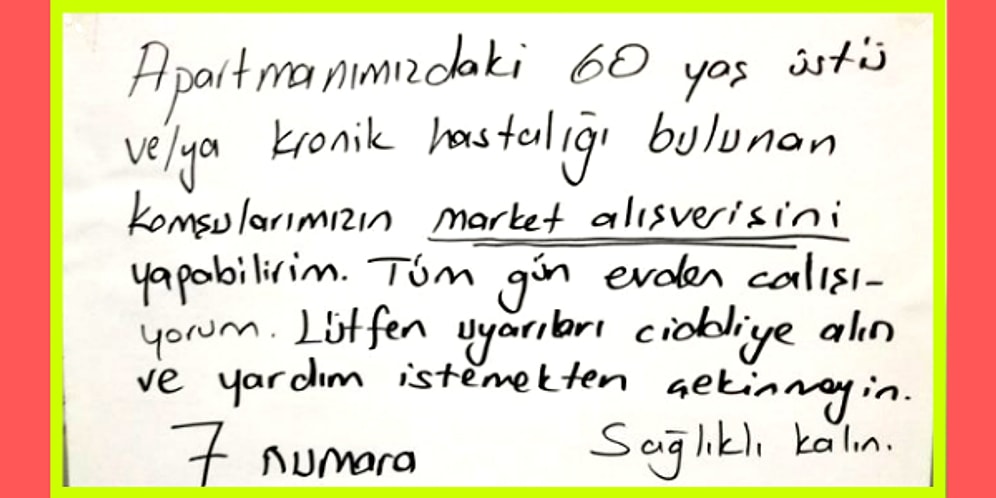 Apartmanımızdaki 60 yaş üstü
ve/ya kronik hastalığı bulunan
komşularımızın market alışverişini
yapabilirim. Tüm gün evden calışı-
yorum. Lütfen uyarıları ciddiye alın
ve yardım istemekten çekinmeyin.
7 numara Sağlıklı kalın.